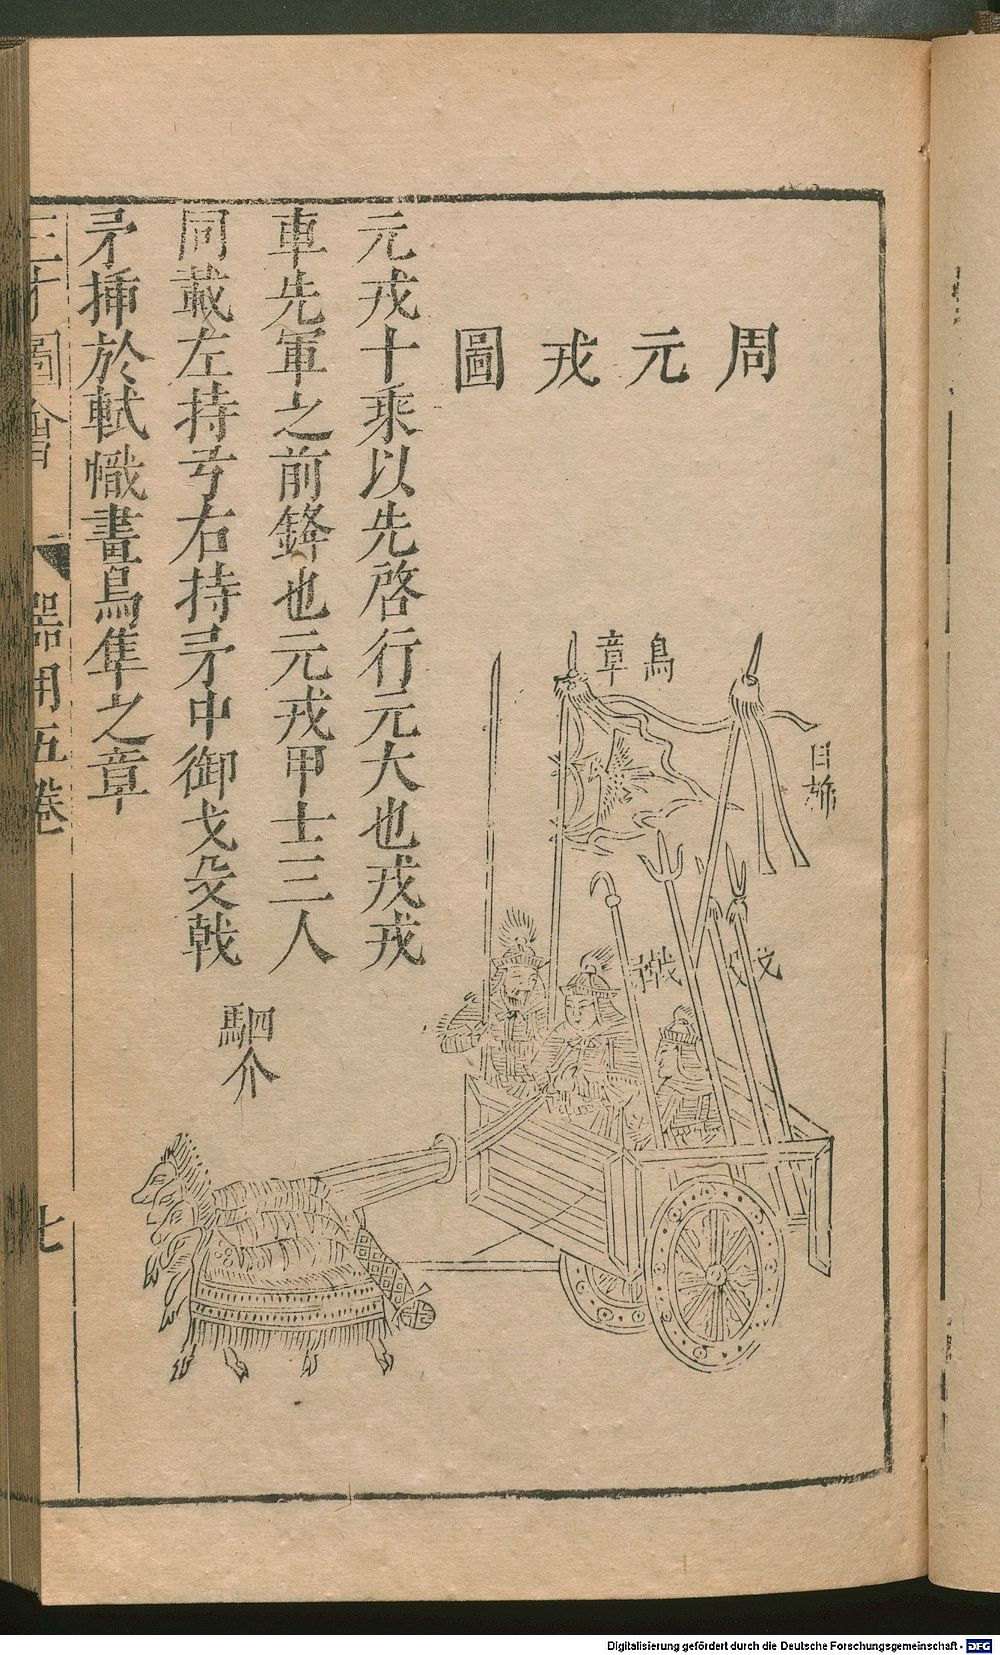 周元戎圖
元戎十乘以先啓行元大也戎戎
車先軍之前鋒也元戎甲士三人
同載左持弓右持矛中御戈殳戟
矛揷於軾幟畫鳥隼之章
鳥章
戟
殳
駟介
三才圖會
器用五卷
七
Digitalisierung gefördert durch die Deutsche Forschungsgemeinschaft - DFG